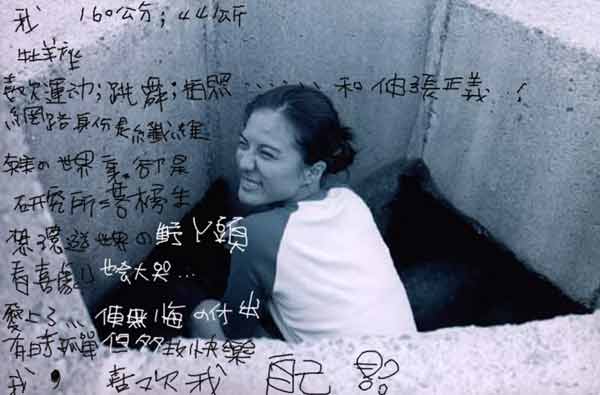 我 160公分;44公斤
牡羊座
喜欢運动;跳舞;拍照......和伸張正義!
網路身份是纖維
の世界裏卻是
研究所落榜生
想環遊世界の野丫頭
看喜劇 也会大哭...
愛上了... 便無悔の付出
有時孤單 但多数快樂
我, 喜欢我 自己